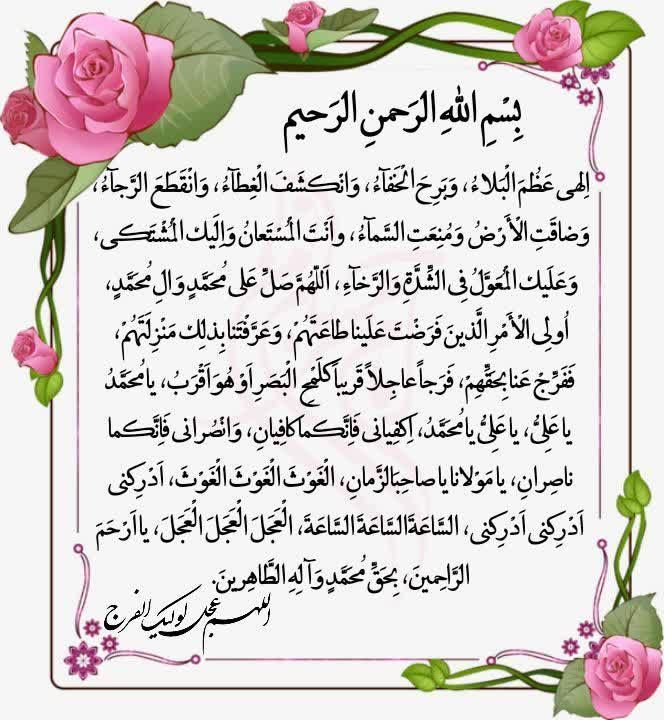 بِسْمِ اللهِ الرَحمنِ الرَحیم
اِلهی عَظُمَ الْبَلاءُ، وَبَرِحَ الْخَفآءُ، وَانْکَشَفَ الْغِطآءُ، وَانْقَطَعَ الرَّجآءُ،
وَضاقَتِ الْأَرْضُ وَمُنِعَتِ السَّمآءُ، واَنْتَ الْمُسْتَعانُ وَاِلَیْكَ الْمُشْتَکی،
وَعَلَیْكَ الْمُعَوَّلُ فِی الشِّدَّةِ وَالرَّخآءِ، اَللّهُمَّ صَلِّ عَلی مُحَمَّدٍ وَالِ مُحَمَّدٍ،
اُولِی الْأَمْرِ الَّذینَ فَرَضْتَ عَلَینا طاعَتَهُمْ، وَعَرَّفْتَنا بِذلِكَ مَنْزِلَتَهُمْ،
فَفَرِّجْ عَنا بِحَقِّهِمْ، فَرَجاً عاجِلاً قَریباً کَلَمْحِ الْبَصَرِ اَوْ هُوَ اَقْرَبُ، یا مُحَمَّدُ
یا عَلِیُّ، یا عَلِیُّ یا مُحَمَّدُ، اِکْفِیانی فَاِنَّکُما کافِیانِ، وَانْصُرانی فَاِنَّکُما
ناصِرانِ، یا مَوْلانا یا صاحِبَ الزَّمانِ، الْغَوْثَ الْغَوْثَ الْغَوْثَ، اَدْرِکْنی
اَدْرِکْنی اَدْرِکْنی، السّاعَةَ السّاعَةَ السّاعَةَ، الْعَجَلَ الْعَجَلَ الْعَجَلَ، یا اَرْحَمَ
الرّاحِمینَ، بِحَقِّ مُحَمَّدٍ وَآلِهِ الطّاهِرینَ.
اللهم عجل لولیک الفرج